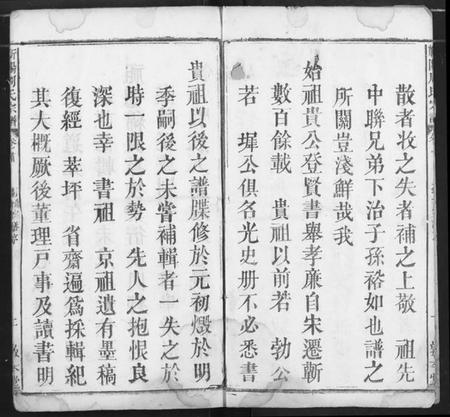 散者收之失者補之上敬　祖先
中聯兄弟下治子孫裕如也譜之
所關豈淺鮮哉我
始祖貴公登賢書舉孝廉自宋遷蘄
數百餘載　貴祖以前若　勃公
若　墀公俱名光史册不必悉書
貴祖以後之譜牒修於元初燬於明
季嗣後之未嘗補輯者一失之於
時一限之於勢　先人之抱恨良
深也幸　書祖　京祖遺有墨稿
復經　萃坪　省齋遍爲採輯紀
其大概厥後董理戸事及讀書明